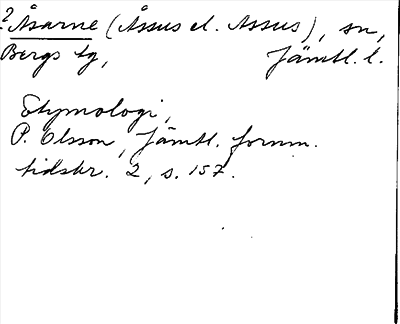 ?Åsarne (Åssus el. Assus), sn,
Bergs tg, Jämtl. l.
Etymologi,
P. Olsson, Jämtl. fornm.
tidskr. 2, s. 157.